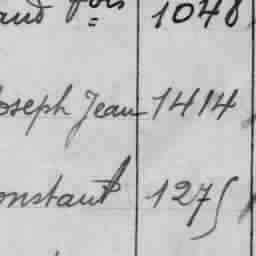 and fois 1048
Joseph Jean 1414
onstant 1275